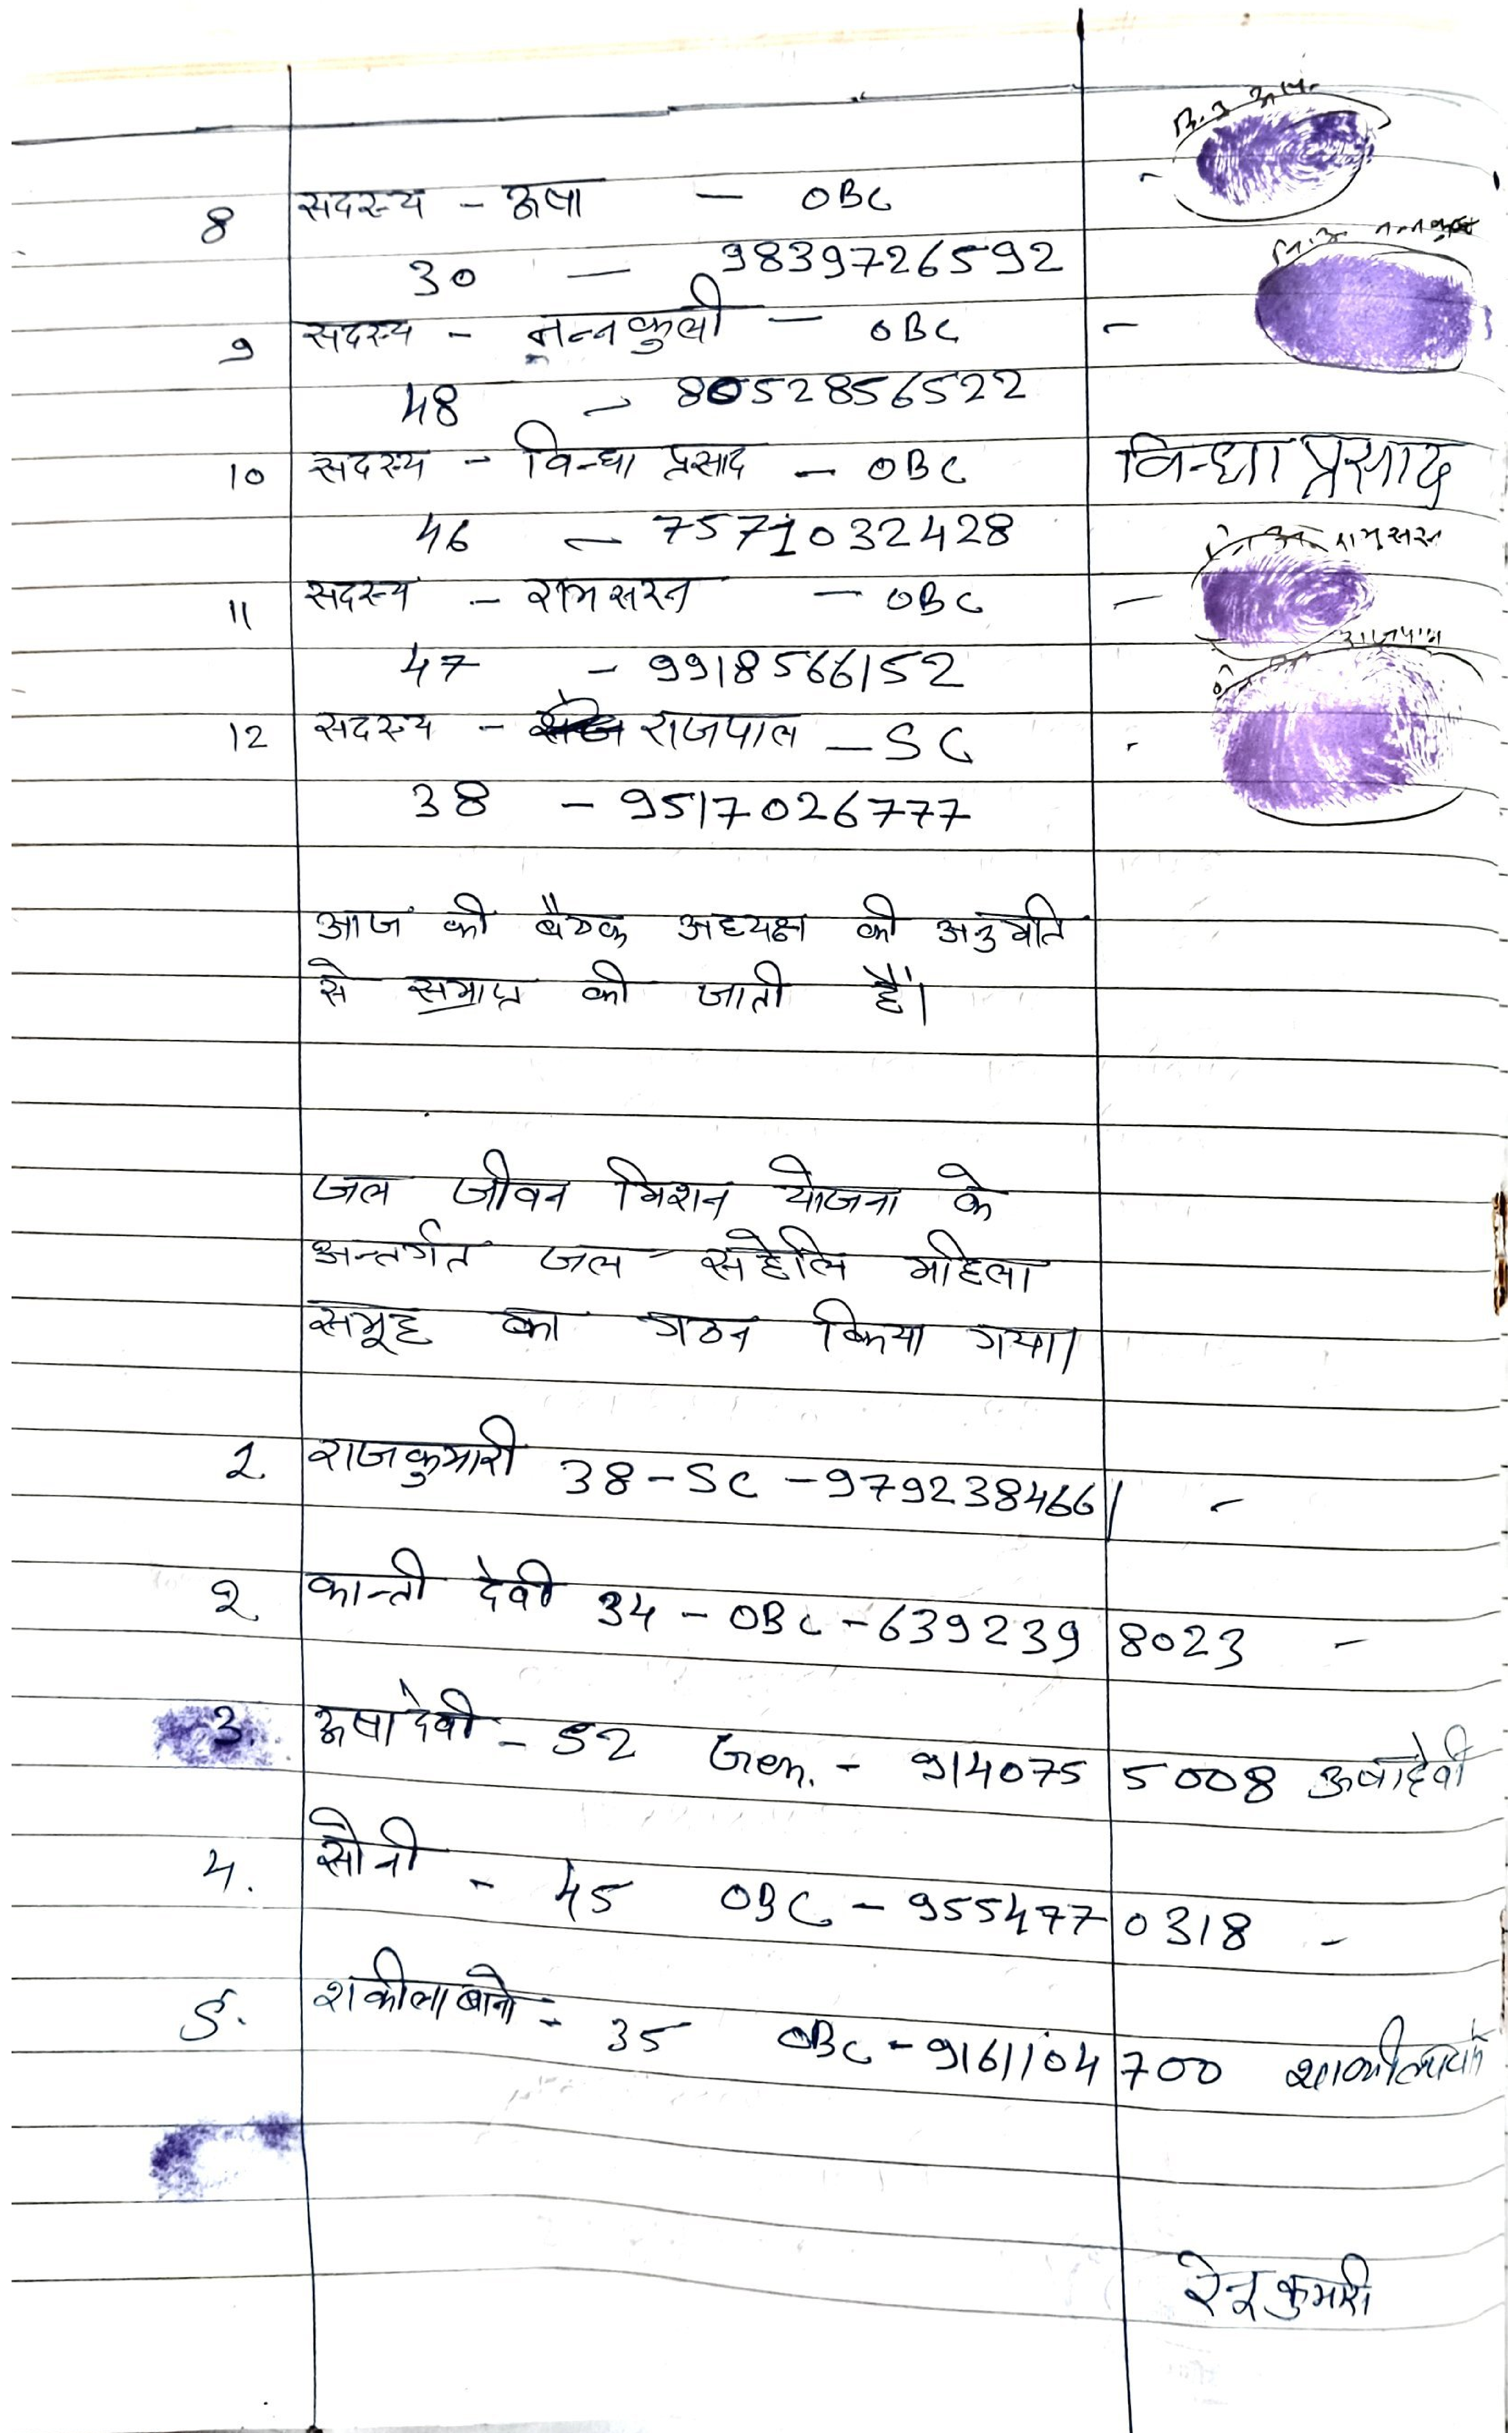 नि.अ ऊषा
8 सदस्य - ऊषा - OBC
30 - 9839726592
नि.अ नन्नकुली
9 सदस्य - नन्नकुली - OBC -
48 - 8052856522
10 सदस्य - विन्धा प्रसाद - OBC विन्धा प्रसाद
46 - 7571032428
नि.अ रामसरन
11 सदस्य - रामसरन - OBC -
47 - 9918566152
राजपाल
12 सदस्य - राजपाल - SC
38 - 9517026777
आज की बैठक अध्यक्ष की अनुमति
से समाप्त की जाती है।
जल जीवन मिशन योजना के
अन्तर्गत जल सहेलि महिला
समूह का गठन किया गया।
1. राजकुमारी 38 - SC - 9792384661 -
2. कान्ती देवी 34 - OBC - 6392398023 -
3. ऊषा देवी - 52 Gen. - 9140755008 ऊषादेवी
4. सोनी - 45 OBC - 9554770318 -
5. शकीला बानो - 35 OBC - 9161104700
रेनू कुमारी